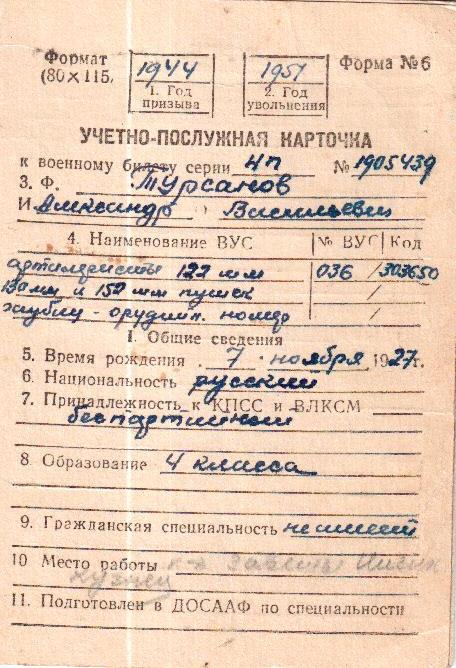 Формат
(80×115,
1944
1. Год
призыва
1951
2. Год
увольнения
Форма №6
УЧЕТНО-ПОСЛУЖНАЯ КАРТОЧКА
к военному билету серии ЧП №1905439
3. Ф. Мурсанов
И. Александр О Васильевич
4. Наименование ВУС № ВУС Код
артилеристы 122 мм 036 303650
130 мм и 152 мм пушек
гаубиц - орудийн. номер
I. Общие сведения
5. Время рождения 7 ноября 1927г.
6. Национальность русский
7. Принадлежность к КПСС и ВЛКСМ
беспартийный
8. Образование 4 класса
9. Гражданская специальность не имеет
10 Место работы к-з Заветы Ильича
кузнец
11. Подготовлен в ДОСААФ по специальности